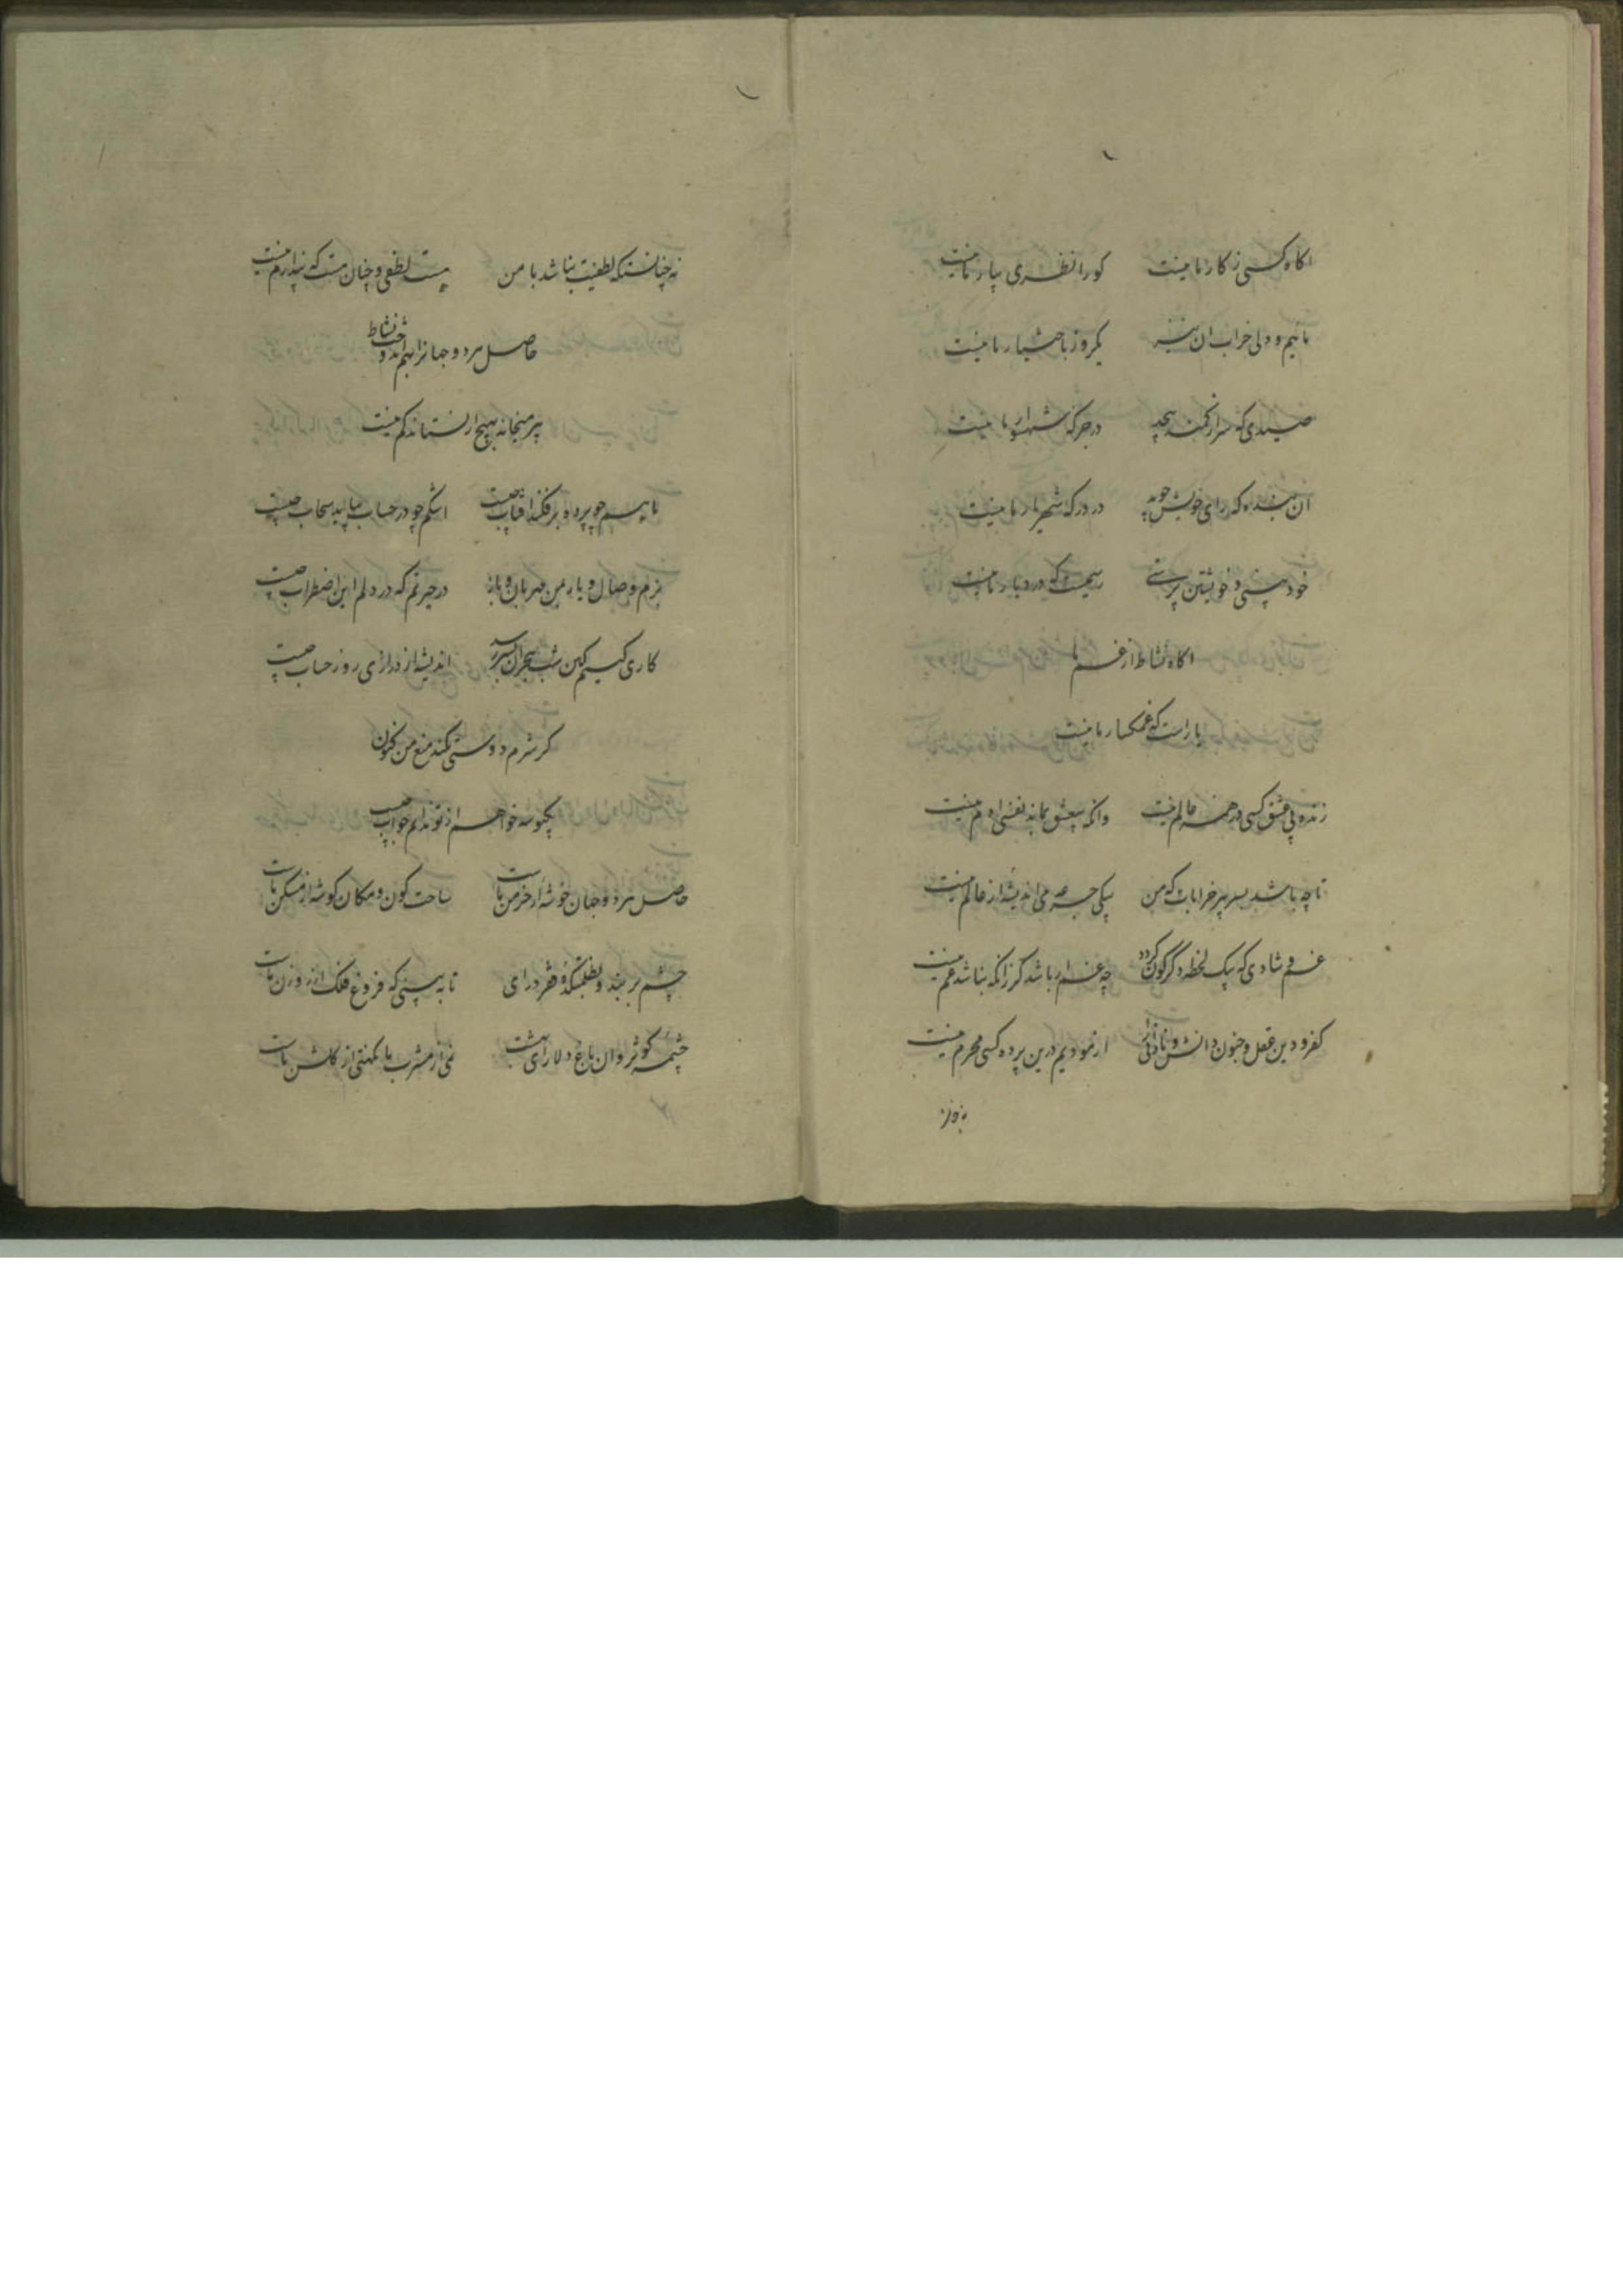 اکاه کسی ز کار ما نیست کو را نظری بیار ما نیست
مائیم و دلی خراب ان نیز یکروز باختیار ما نیست
صیدی که سر از کمند پیچد در جرکه شهسوار ما نیست
ان بنده که رای خویش جوید در درکه شهریار ما نیست
خودبینی و خویشتن پرستی رسمیست که در دیار ما نیست
اکاه نشاط از غم ما
یاراست که غمکسار ما نیست
زنده بی عشق کسی در همه عالم نیست وانکه بیعشق بماند نفسی ادم نیست
تا چه باشد بسر پیر خرابات که من بیکی جرعه می اندیشه‌ از عالم نیست
غم و شادی که بیک لحظه دکرکون کردد چه غم ار باشد کر زانکه نباشد غم نیست
کفر و دین عقل و جنون دانش و نادانی را ازمودیم درین پرده کسی محرم نیست
نه چنانستکه لطفیت نباشد با من هست لطفی و چنان هست که پندارم نیست
حاصل هر دو جهانرا بهم اندوخت نشاط
پیر میخانه بهیچ ار نستاند کم نیست
ماهم چو پرده برفکند افتاب چیست اشکم چو در حساب بیاید سحاب چیست
بزم وصال و یار بمن مهربان و باز در حیرتم که در دلم این اضطراب چیست
کاری کنیم کین شب هجران بسر رسد اندیشه از درازی روز حساب چیست
کر شرم دوستی نکند منع من کنون
یکبوسه خواهم از تو ندانم جواب چیست
حاصل هر دو جهان خوشه‌ از خرمن ماست ساحت کون و مکان کوشه از مسکن ماست
چشم بربند و بظلمتکده فقر درای تا به بینی که فروغ فلک از روزن ماست
چشمه کوثر و ان باغ دلارای بهشت نمی از مشرب ما نکهتی از کلشن ماست